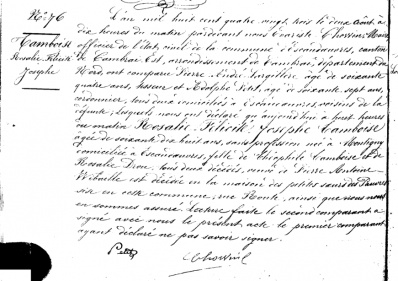 N° 76
Camboise
Rosalie Félicité
Joseph
L'an mil huit cent quatre vingt, trois le deux Août, à
dix heures du matin pardevant nous Evariste Maire
officier de l'état civil de la commune d'Escaudœuvres, canton
de Cambrai Est, arrondissement de Cambrai, département du
Nord, ont comparu Pierre André âgé de soixante
quatre ans, et Adolphe Petit, âgé de soixante sept ans,
cordonnier, tous deux domiciliés à Escaudœuvres, voisins de la
défunte, lesquels nous ont déclaré qu'aujourd'hui à huit heures
du matin Rosalie Félicité Josephe Camboise
âgée de soixante dix huit ans, sans profession né à Montigny
domiciliée à Escaudœuvres, fille de Théophile Camboise et de
Rosalie tous deux décédés, veuve de Pierre Antoine
est décédée en la maison des petites sœurs des Pauvres
sise en cette commune, rue ainsi que nous nous
en sommes assuré. Lecture faite le second comparant a
signé avec nous le présent acte le premier comparant
ayant déclaré ne pas savoir signer.
Petit